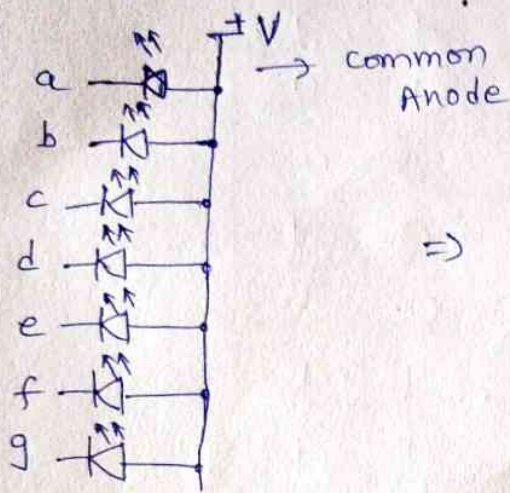 +V
→ common
Anode
a
b
c
d
⇒
e
f
g